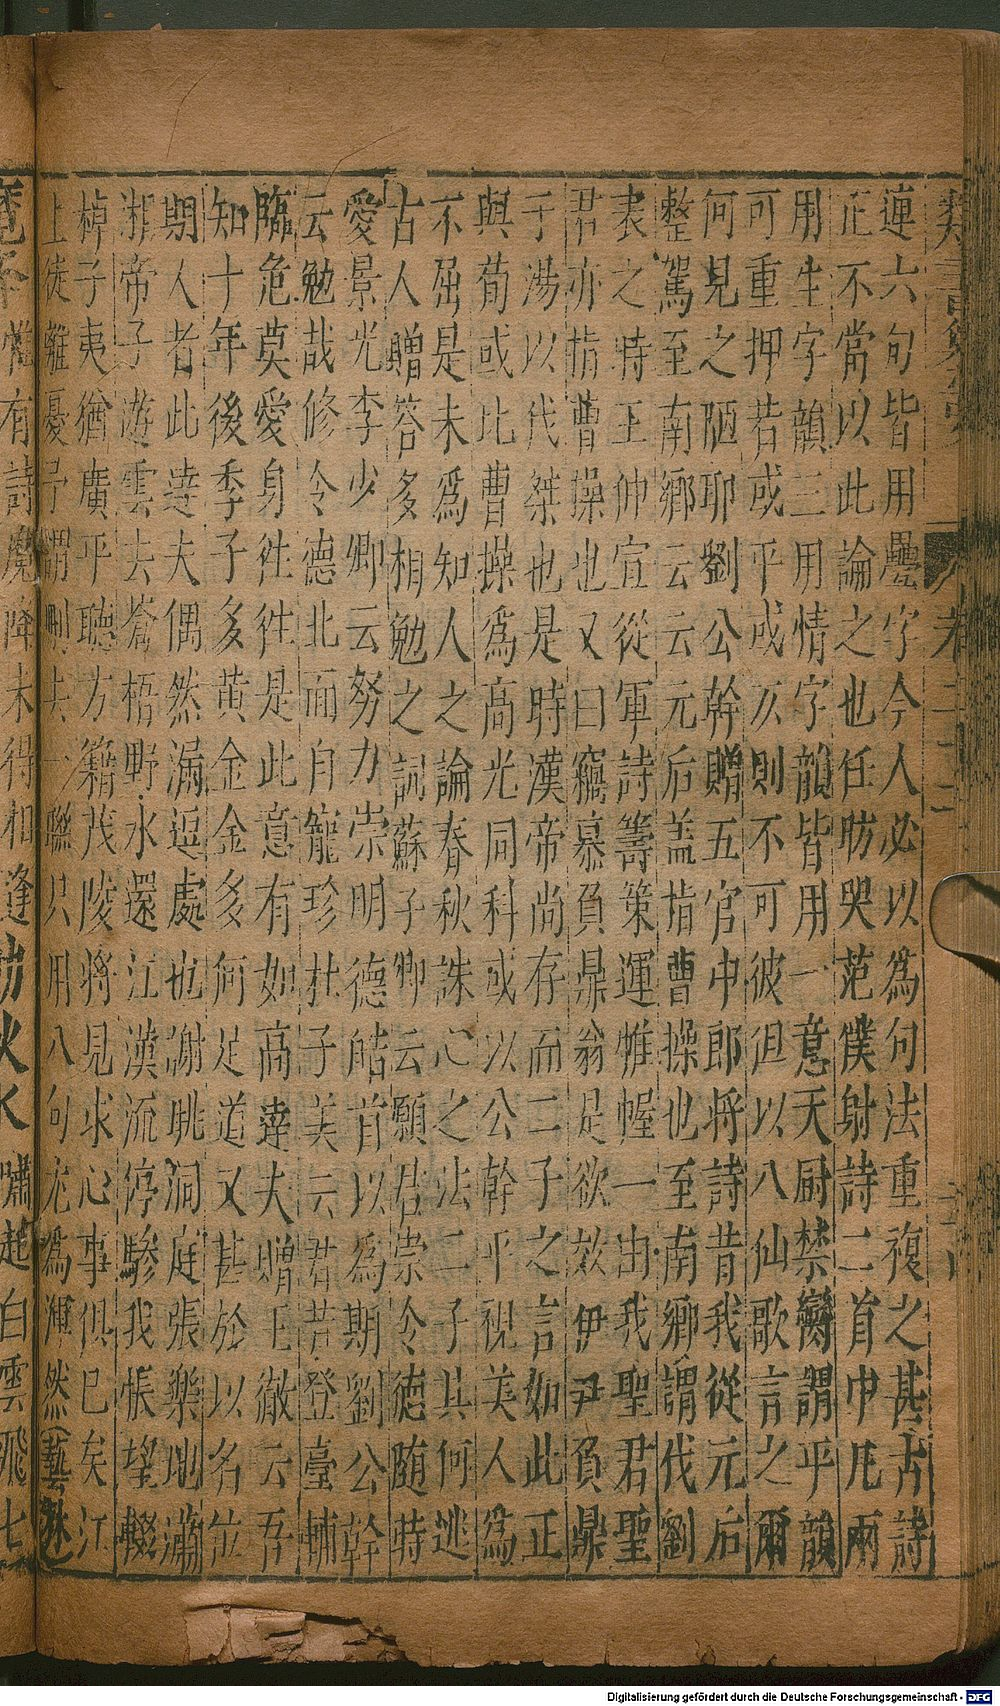 連六句皆用疊字今人必以為句法重復之甚古詩
正不當以此論之也任昉哭范僕射詩二首中凡兩
用生字韻三用情字韻皆用一意天厨禁臠謂平韻
可重押若或平或仄則不可彼但以八仙歌言之爾
何見之陋耶劉公幹贈五官中郎將詩昔我從元后
整駕至南鄉云云元后盖指曹操也至南鄉謂伐劉
表之時王仲宣從軍詩籌策運帷幄一由我聖君聖
君亦指曹操也又曰竊慕負鼎翁足欲效伊尹負鼎
于湯以伐桀也是時漢帝尚存而二子之言如此正
與荀或比曹操為高光同科或以公幹平視美人為
不屈是未為知人之論春秋誅心之法二子其何逃
古人贈答多相勉之詞蘇子卿云願君崇令德随時
愛景光李少卿云努力崇明德皓首以為期劉公幹
云勉哉修令德北面自寵珍杜子美云君若登臺輔
臨危莫愛身徃徃是此意有如高達夫贈王徹云吾
知十年後季子多黄金金多何足道又甚於以名位
期人者此達夫偶然漏逗處也謝眺洞庭張樂地瀟
湘帝子遊雲去蒼梧野水還江漢流停驂我悵望輟
棹子夷猶廣平聽方籍茂陵將見求心事俱已矣江
上徒離憂予謂刪去一聯只用八句尤為渾然
有詩魔降未得相逢
嘯起白雲飛七